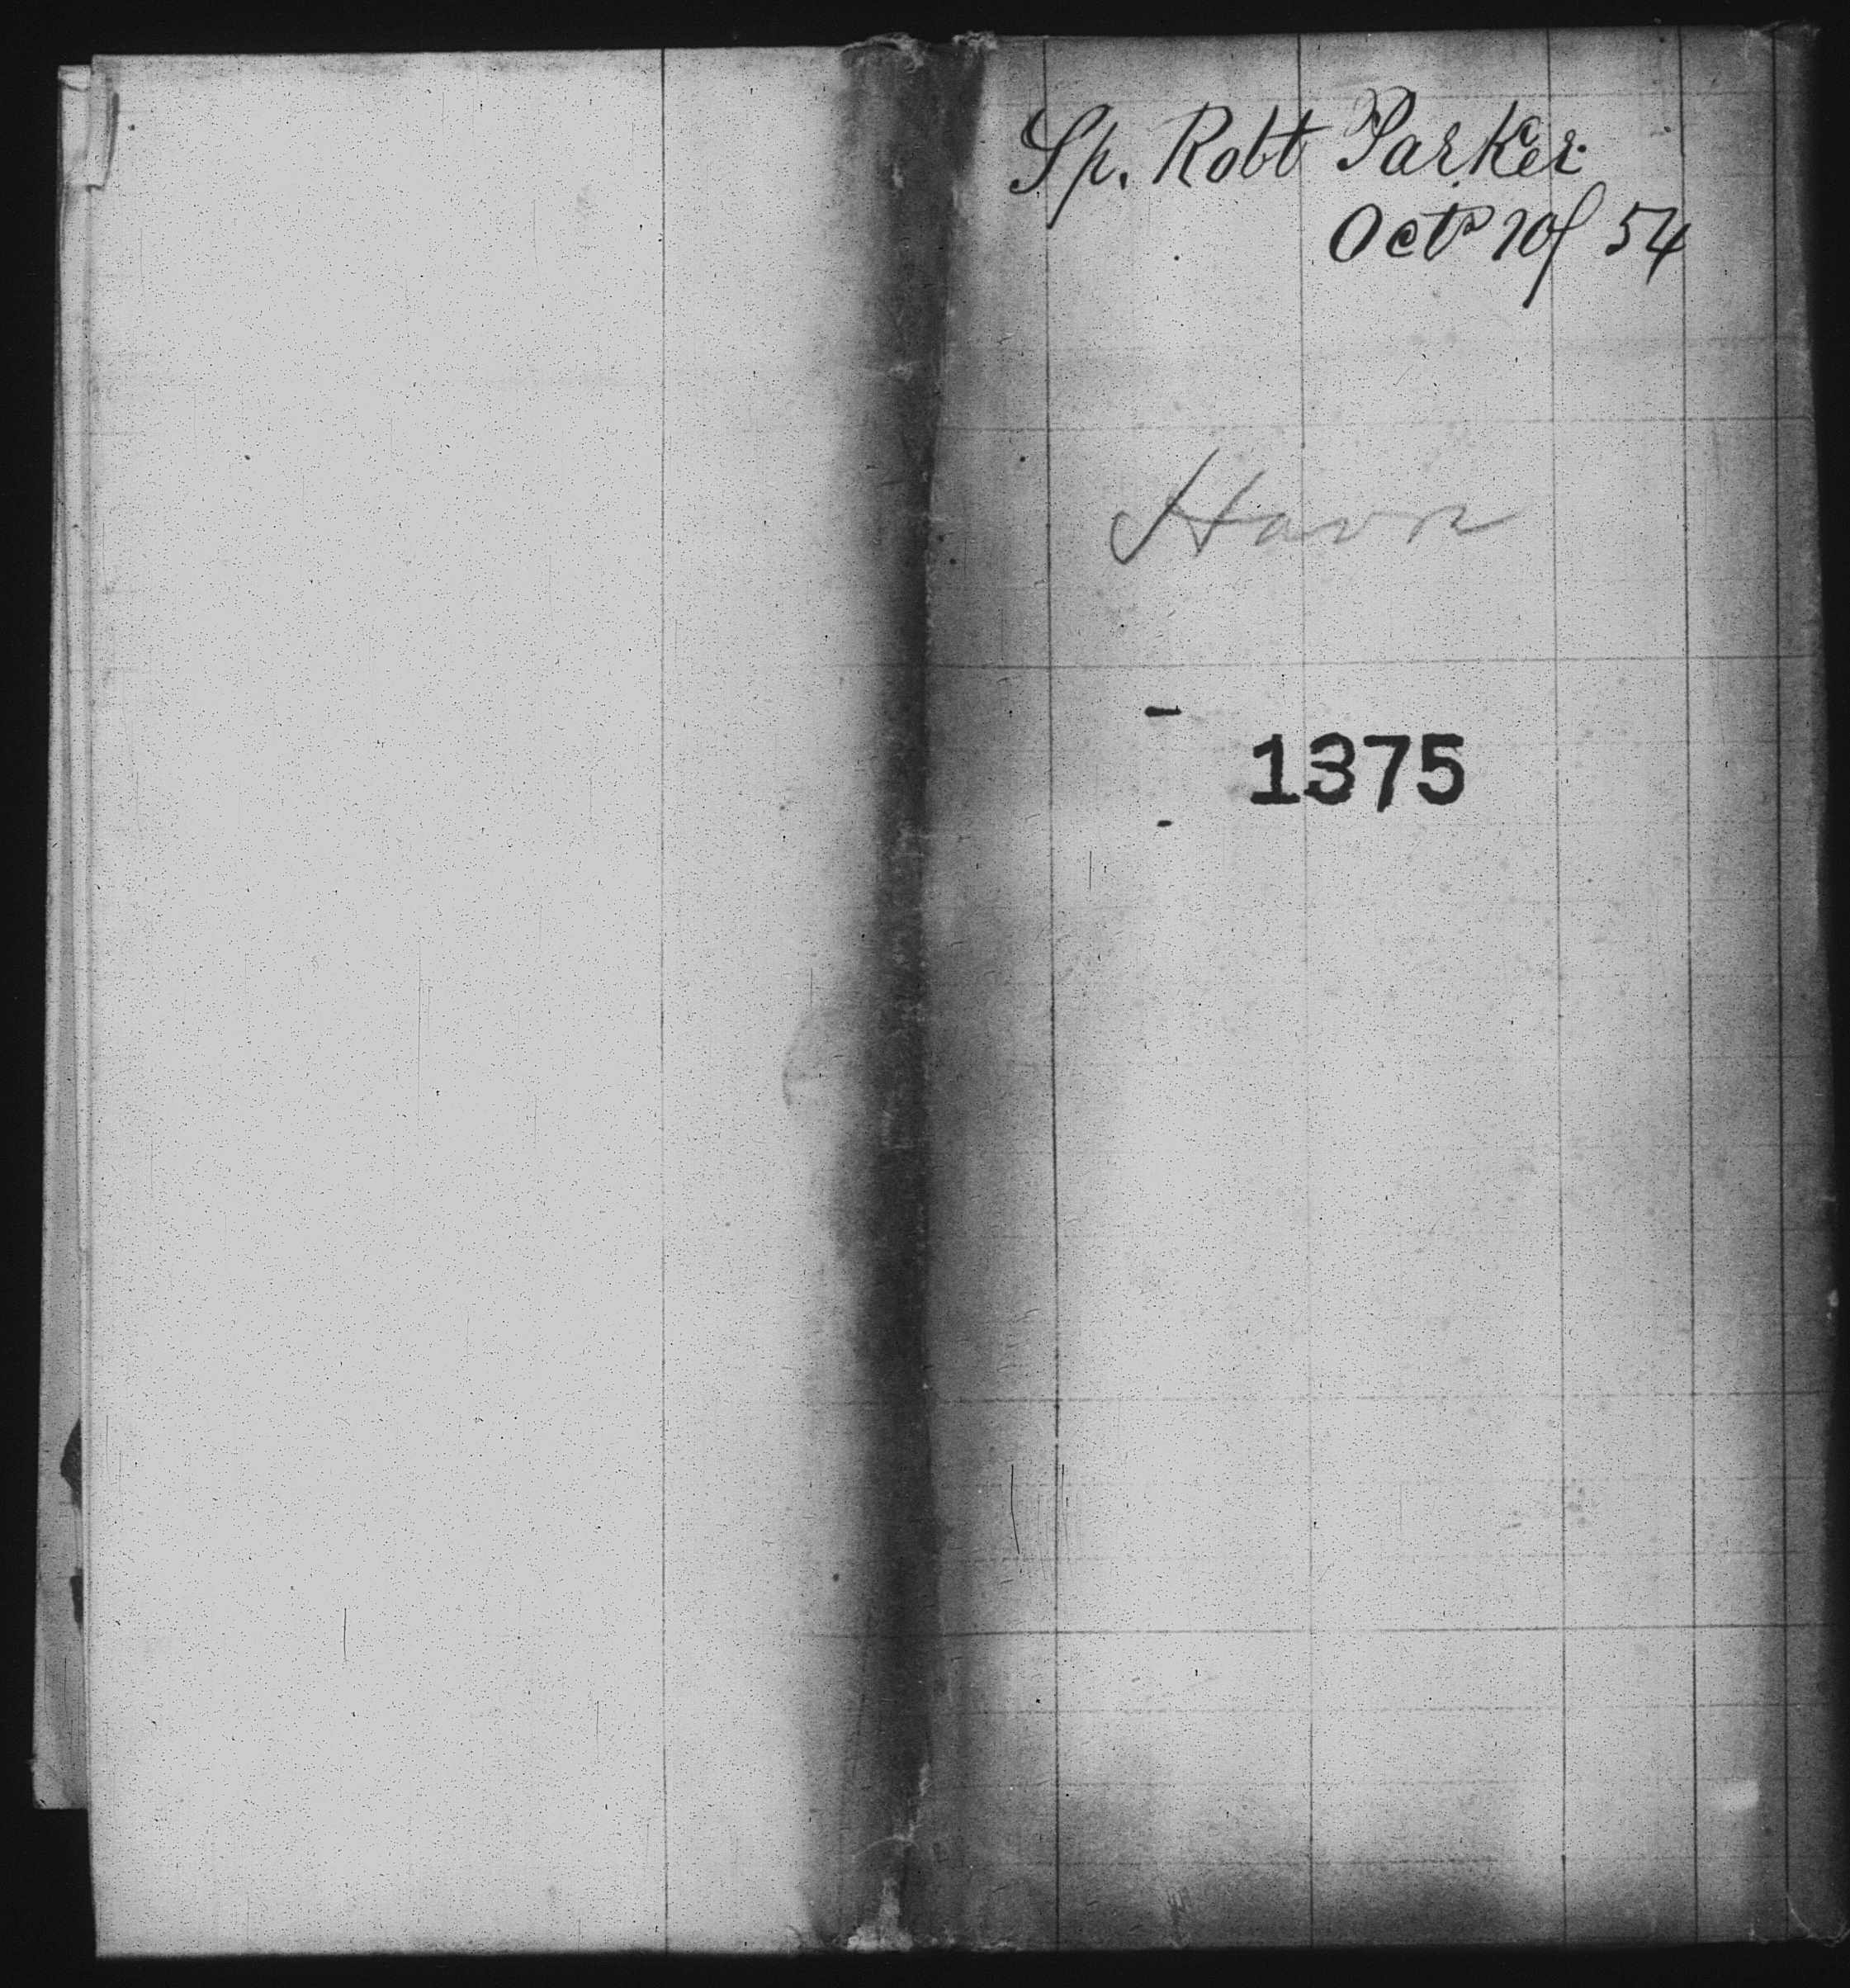 Sp. Robt Parker
Oct 20/ 54
Havn
1375